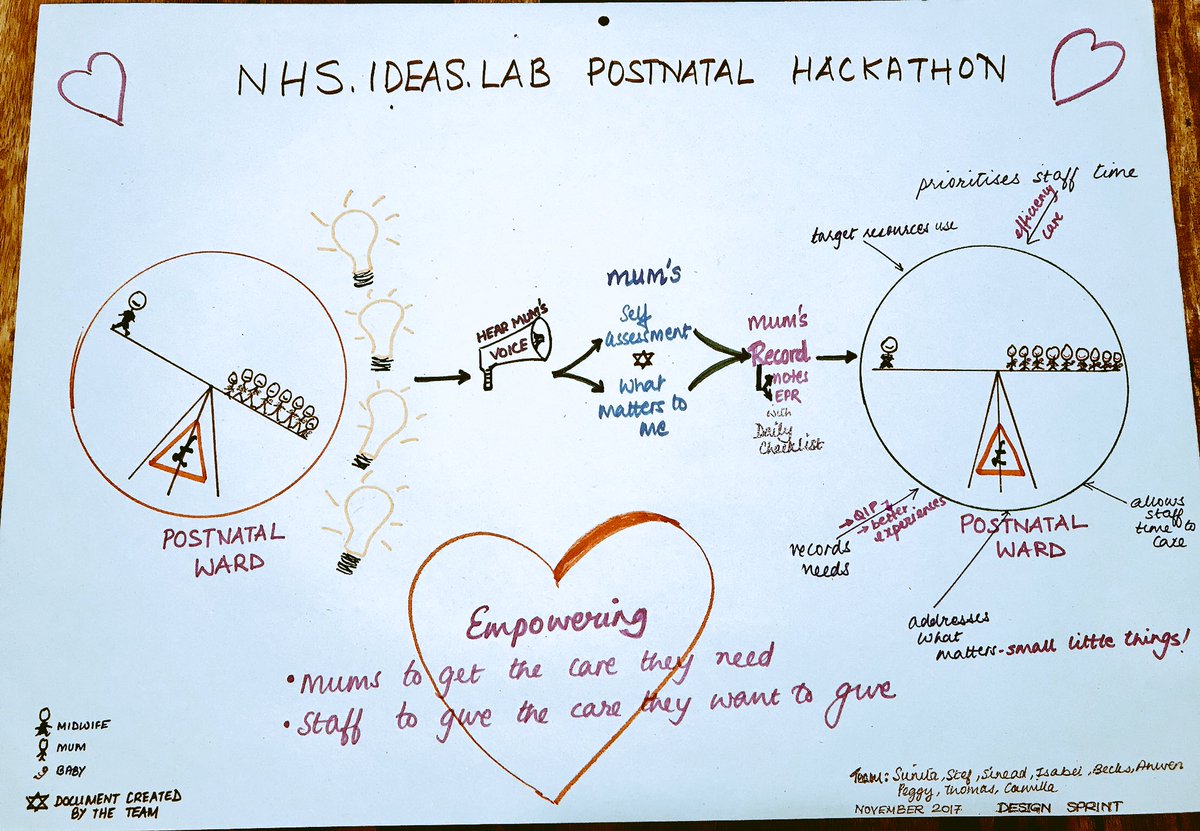 NHS.IDEAS.LAB POSTNATAL HACKATHON
POSTNATAL
WARD
HEAR MUM'S
VOICE
mum's
Self
assessment
What
matters to
me
mum's
Record
notes
EPR
with
Daily
Checklist
prioritises staff time
efficiency
care
target resources use
POSTNATAL
WARD
→QIP→
→better
experiences
records
needs
allows
staff
time to
care
addresses
what
matters-small little things!
Empowering
•mums to get the care they need
•Staff to give the care they want to give
MIDWIFE
MUM
BABY
DOCUMENT CREATED
BY THE TEAM
Team: Sunita, Stef, Sinead, Isabel, Becks, Anwen
Peggy, Thomas, Camilla
NOVEMBER 2017 DESIGN SPRINT